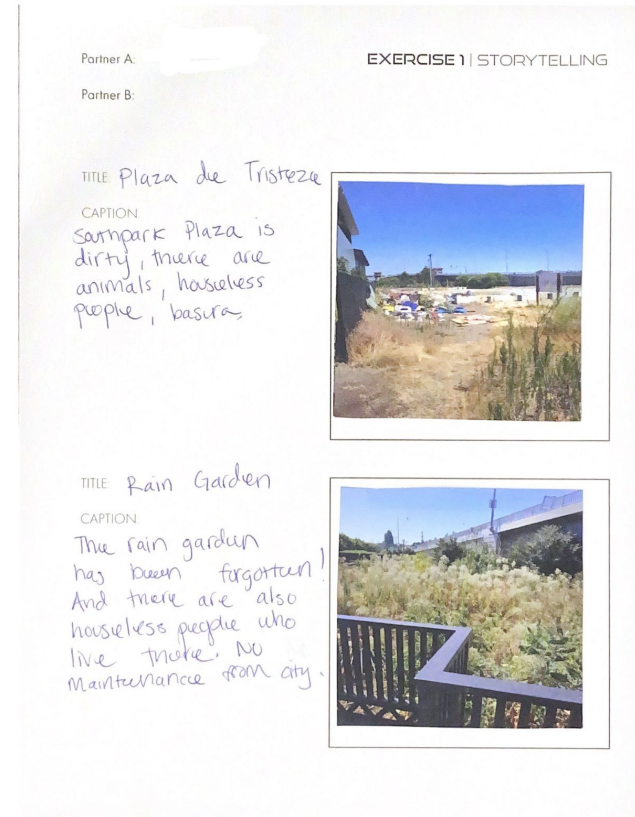 Partner A:
EXERCISE 1 | STORYTELLING
Partner B:
TITLE: Plaza de Tristeza
CAPTION
Southpark Plaza is
dirty, there are
animals, houseless
people, basura.
TITLE: Rain Garden
CAPTION
The rain garden
has been forgotten!
And there are also
houseless people who
live there. No
maintenance from city.